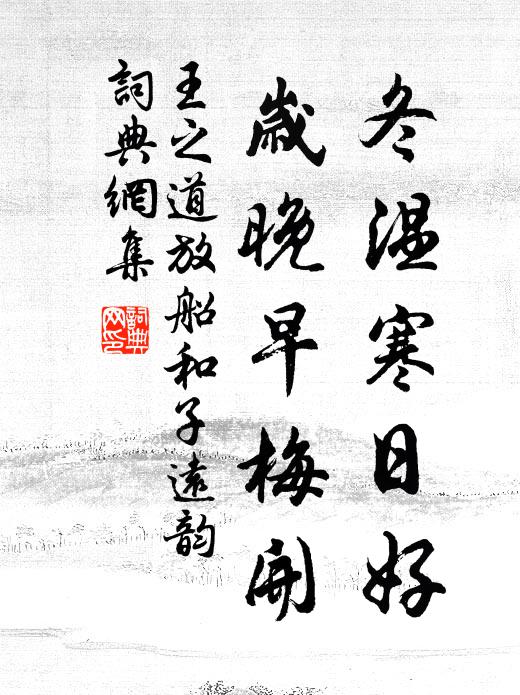 冬温寒日好
歲晚早梅開
王之道放船和子遠韵
詞典網集
詞典网印